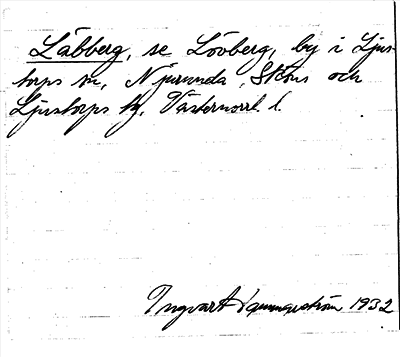 Läbberg, se Lövberg, by i Ljus-
torps sn, Njurunda, Sköns och
Ljustorps tg, Västernorrl. l.
Ingvart 1932